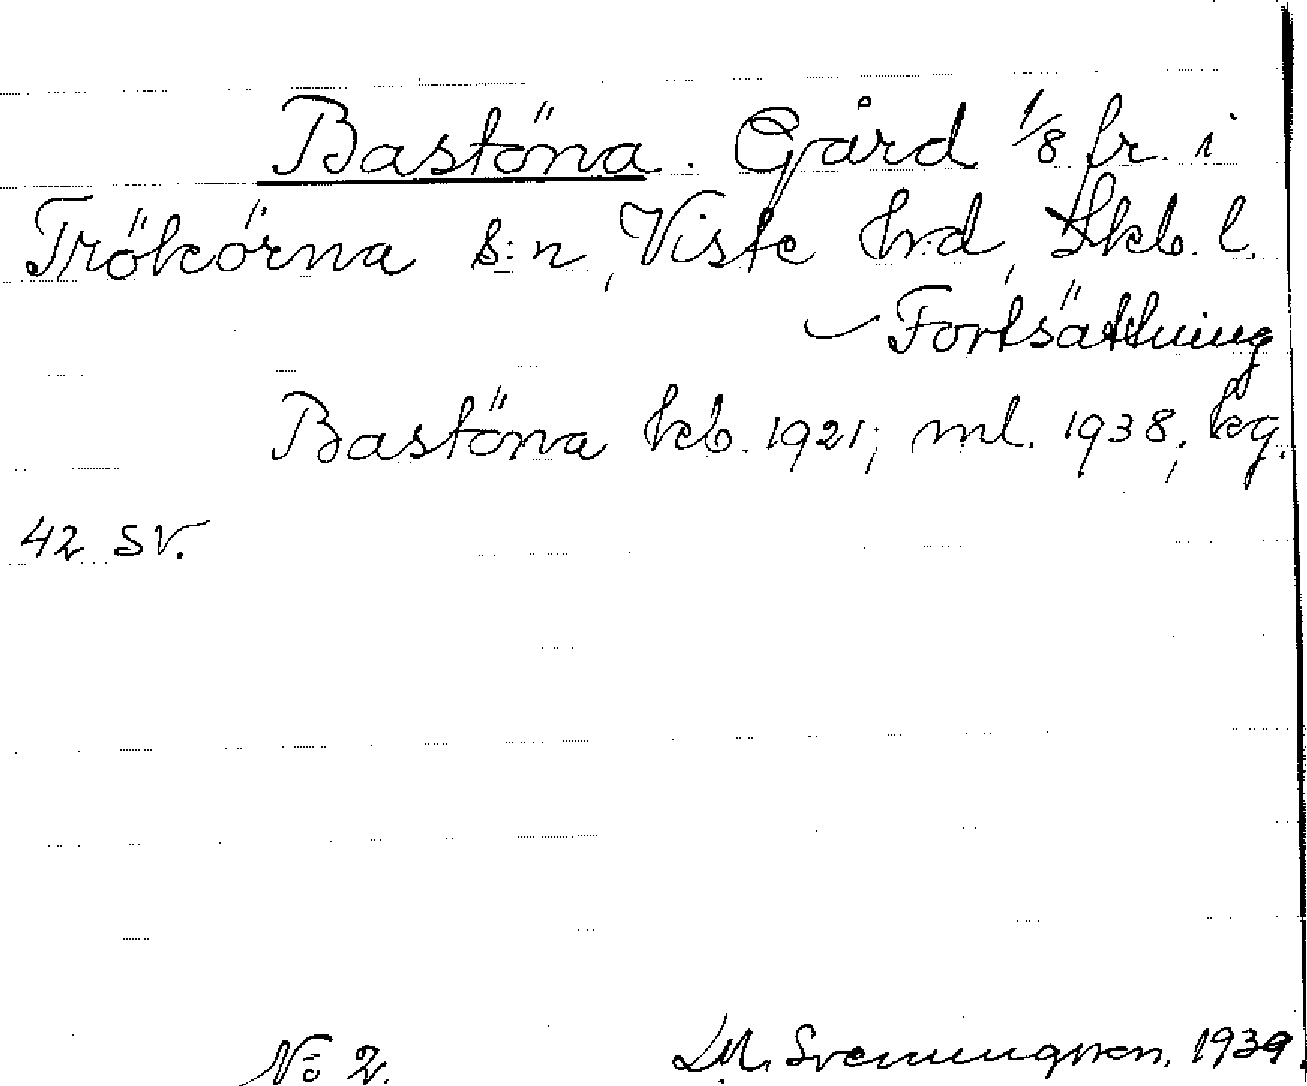 Bastöna. Gård 1/8 fr. i
Trökörna s:n, Viste hrd, Skb. l.
Fortsättning
Bastöna kb. 1921; ml. 1938; kg.
42 sv.
No 2.
Svenungsson. 1939